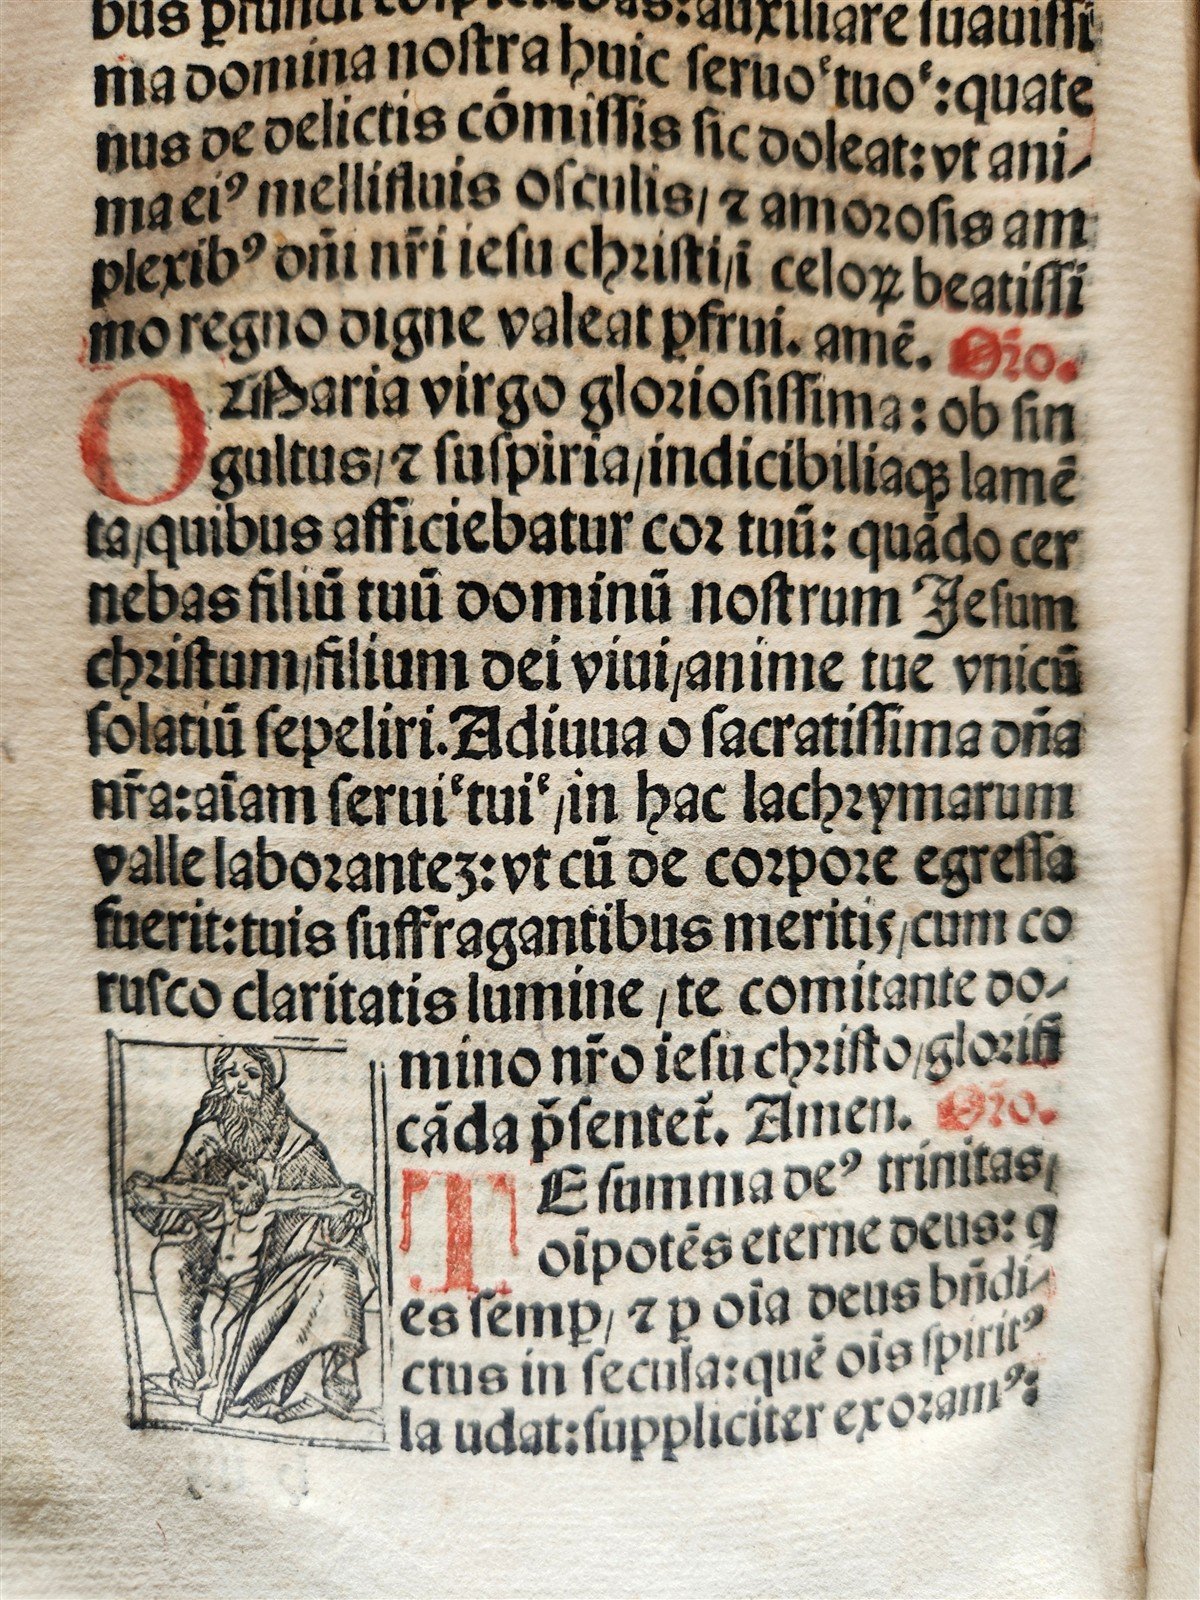 auxiliare ſuauiſſi
ma domina noſtra huic ſeruoᵉtuoᵉ:quate
nus de delictis cõmiſſis ſic doleat:vt ani/
ma eiꝰ mellifluis oſculis/ ⁊ amoꝛoſis am
plexibꝰ dñi nr̃i ieſu chꝛiſti/ĩ celoꝝ beatiſſi
mo regno digne valeat ꝑfrui. amẽ. Oꝛ̃o.
O Maria virgo gloꝛioſiſſima: ob ſin
gultus/⁊ ſuſpiria/indicibiliaqꝫ lamẽ
ta/quibus afficiebatur coꝛ tuũ: quãdo cer
nebas filiũ tuũ dominũ noſtrum Jeſum
chꝛiſtum/filium dei viui/anime tue vnicũ
ſolatiũ ſepeliri. Adiuua o ſacratiſſima dña
nr̃a:aĩam ſeruiᵉtuiᵉ/in hac lachꝛymarum
valle laboꝛanteꝫ:vt cũ de coꝛpoꝛe egreſſa
fuerit:tuis ſuffragantibus meritis/cum co
ruſco claritatis lumine/te comitante do/
mino nr̃o ieſu chꝛiſto/gloꝛifi
cãda p̃ſentet̃. Amen. Oꝛ̃o.
TE ſumma deꝰ trinitas/
oĩpotẽs eterne deus: q
es ſemꝑ/ ⁊ ꝑ oĩa deus bñdi/
ctus in ſecula:quẽ oĩs ſpiritꝰ
la udat:ſuppliciter exoꝛamꝰ: